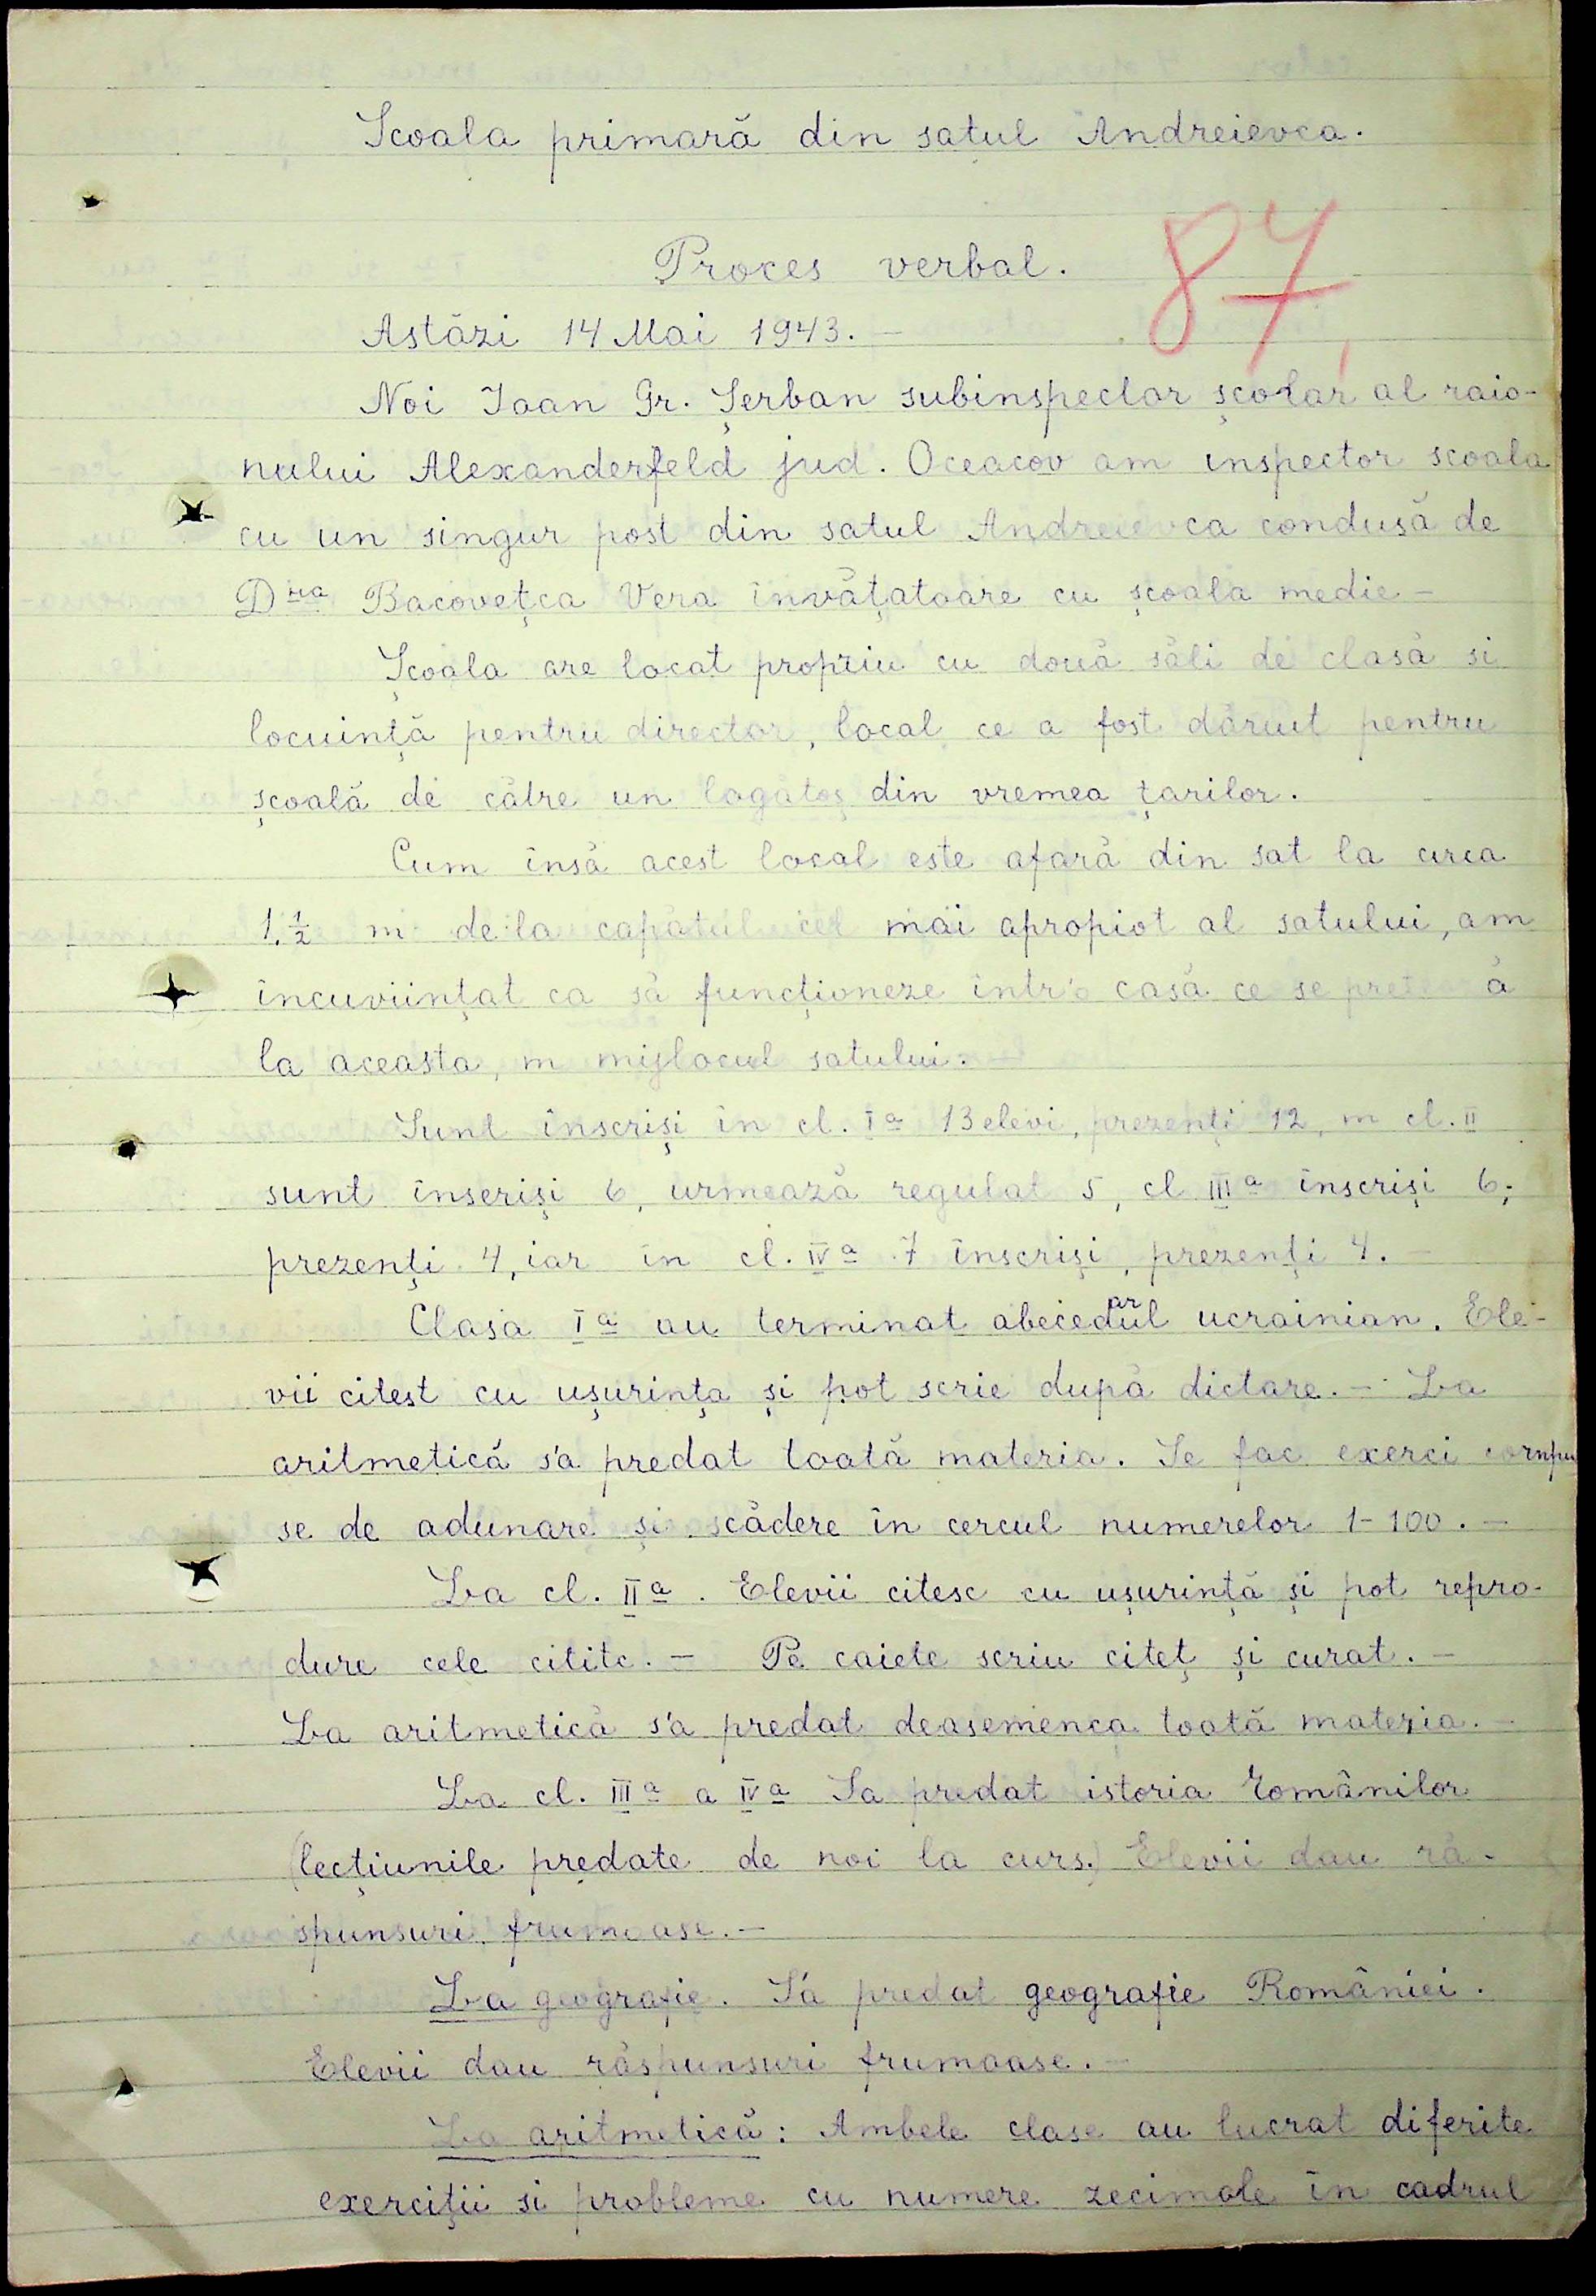 Scoala primară din satul Andreievca.
87,
Proces verbal.
Astăzi 14 Mai 1943. —
Noi Ioan Gr. Șerban subinspector școlar al raio-
nului Alexanderfeld jud. Oceacov am inspector scoala
cu un singur post din satul Andreievca condusă de
Dna Bacovețca Vera învățatoare cu școala medie —
Școala are locat propriu cu două săli de clasă si
locuință pentru director, local ce a fost dăruit pentru
școală de către un bogătoș din vremea țarilor.
Cum însă acest local este afară din sat la circa
1.½ m de la capătul cel mai apropiat al satului, am
încuviințat ca să funcționeze într'o casă ce se pretează
la aceasta, in mijlocul satului. —
Sunt înscriși în cl. Ia 13 elevi, prezenți 12, in cl. II
sunt înseriși 6, urmează regulat 5, cl IIIa înscriși 6;
prezenți 4, iar in cl. IVa 7 înscriși, prezenți 4. —
Clasa Ia au terminat abecedarul ucrainian. Ele-
vii citest cu ușurința și pot scrie după dictare. — La
aritmetică s'a predat toată materia. Se fac exerci compu
se de adunare și scădere în cercul numerelor 1-100. —
La cl. IIa. Elevii citesc cu ușurință și pot repro-
dure cele citite. — Pe caiete scriu citeț și curat. —
La aritmetică s'a predat deasemenea toată materia. —
La cl. IIIa a IVa Sa predat istoria Românilor
(lecțiunile predate de noi la curs.) Elevii dau ră-
spunsuri frumoase. —
La geografie. S'a predat geografie României.
Elevii dau răspunsuri frumoase. —
La aritmetică: Ambele clase au lucrat diferite
exerciții si probleme cu numere zecimale în cadrul